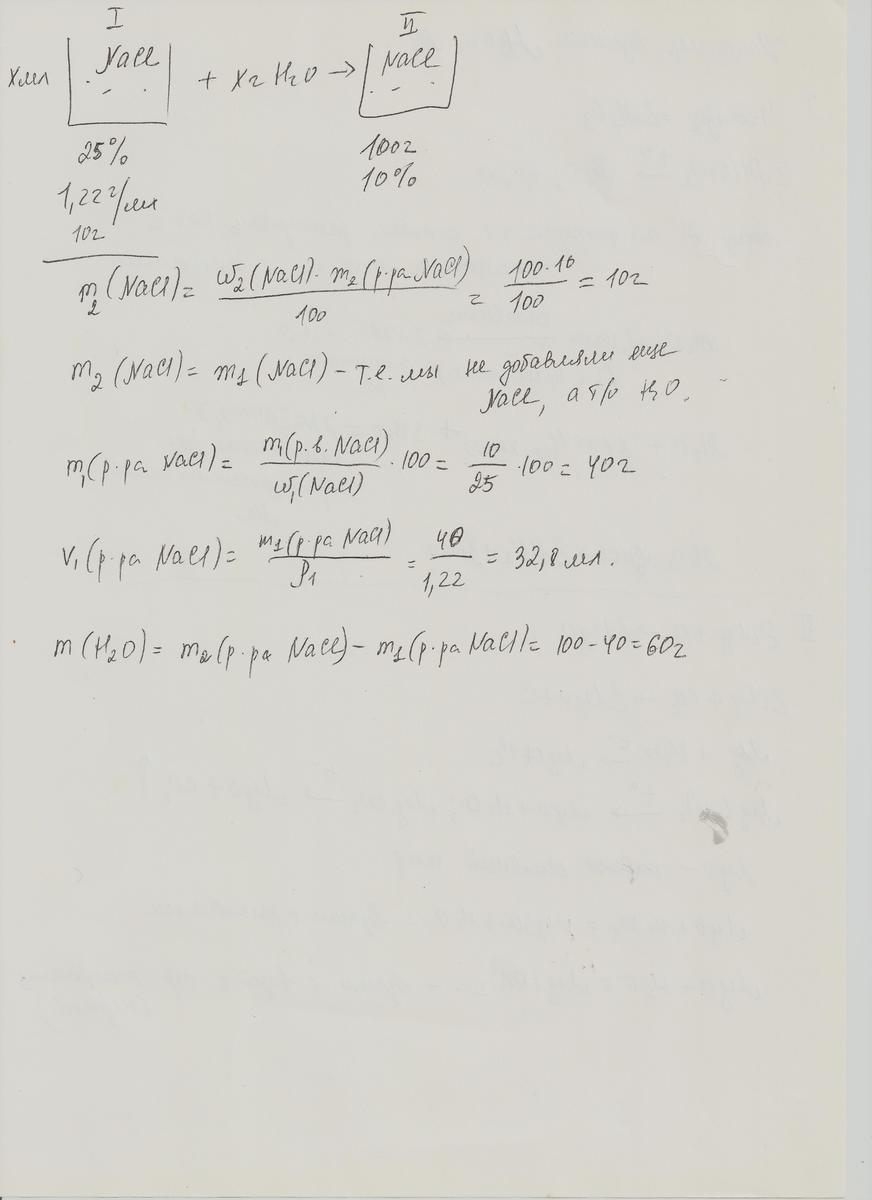 I II
х мл NaCl + х г H2O → NaCl
25% 100г
1,22 г/мл 10%
10г
m2(NaCl) = ω2(NaCl)·m2(р-ра NaCl)/100 = 100·10/100 = 10г
m2(NaCl) = m1(NaCl) – т.е. мы не добавляли еще
NaCl, а т/о H2O.
m1(р-ра NaCl) = m1(р.в. NaCl)/ω1(NaCl) · 100 = 10/25 · 100 = 40г
V1(р-ра NaCl) = m1(р-ра NaCl)/ρ1 = 40/1,22 = 32,8 мл.
m(H2O) = m2(р-ра NaCl) – m1(р-ра NaCl) = 100 – 40 = 60г